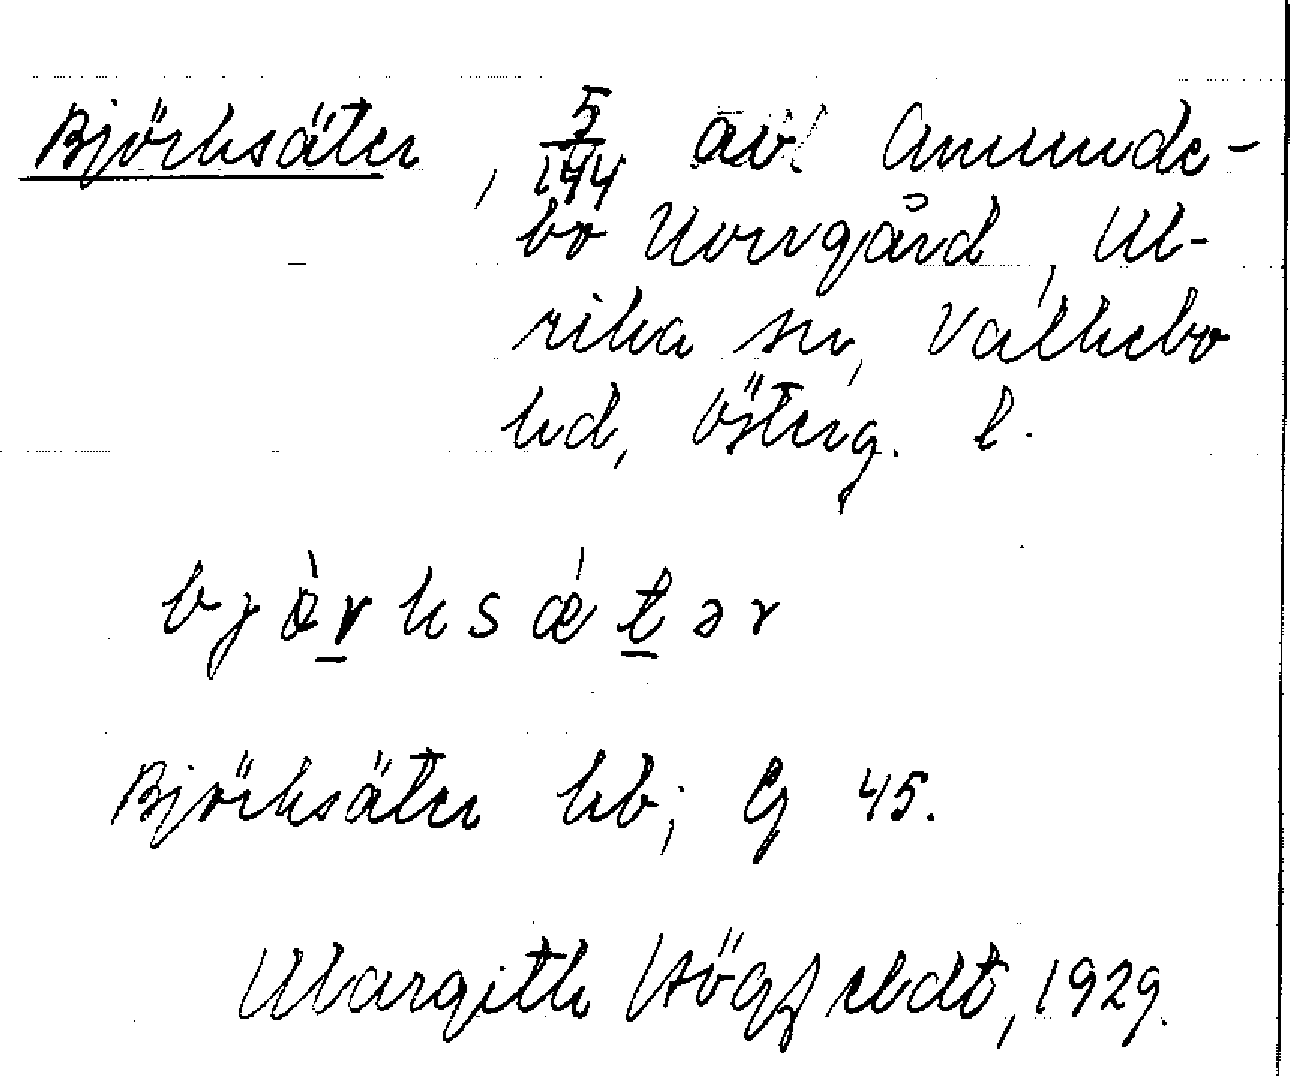 Björksäter, 5/144 av Amunde-
bo Norrgård, Ul-
rika sn, Valkebo
hd, Österg. l.
bjò̱rksǽṯər
Björksäter hb; G 45.
Margith Högfeldt, 1929.